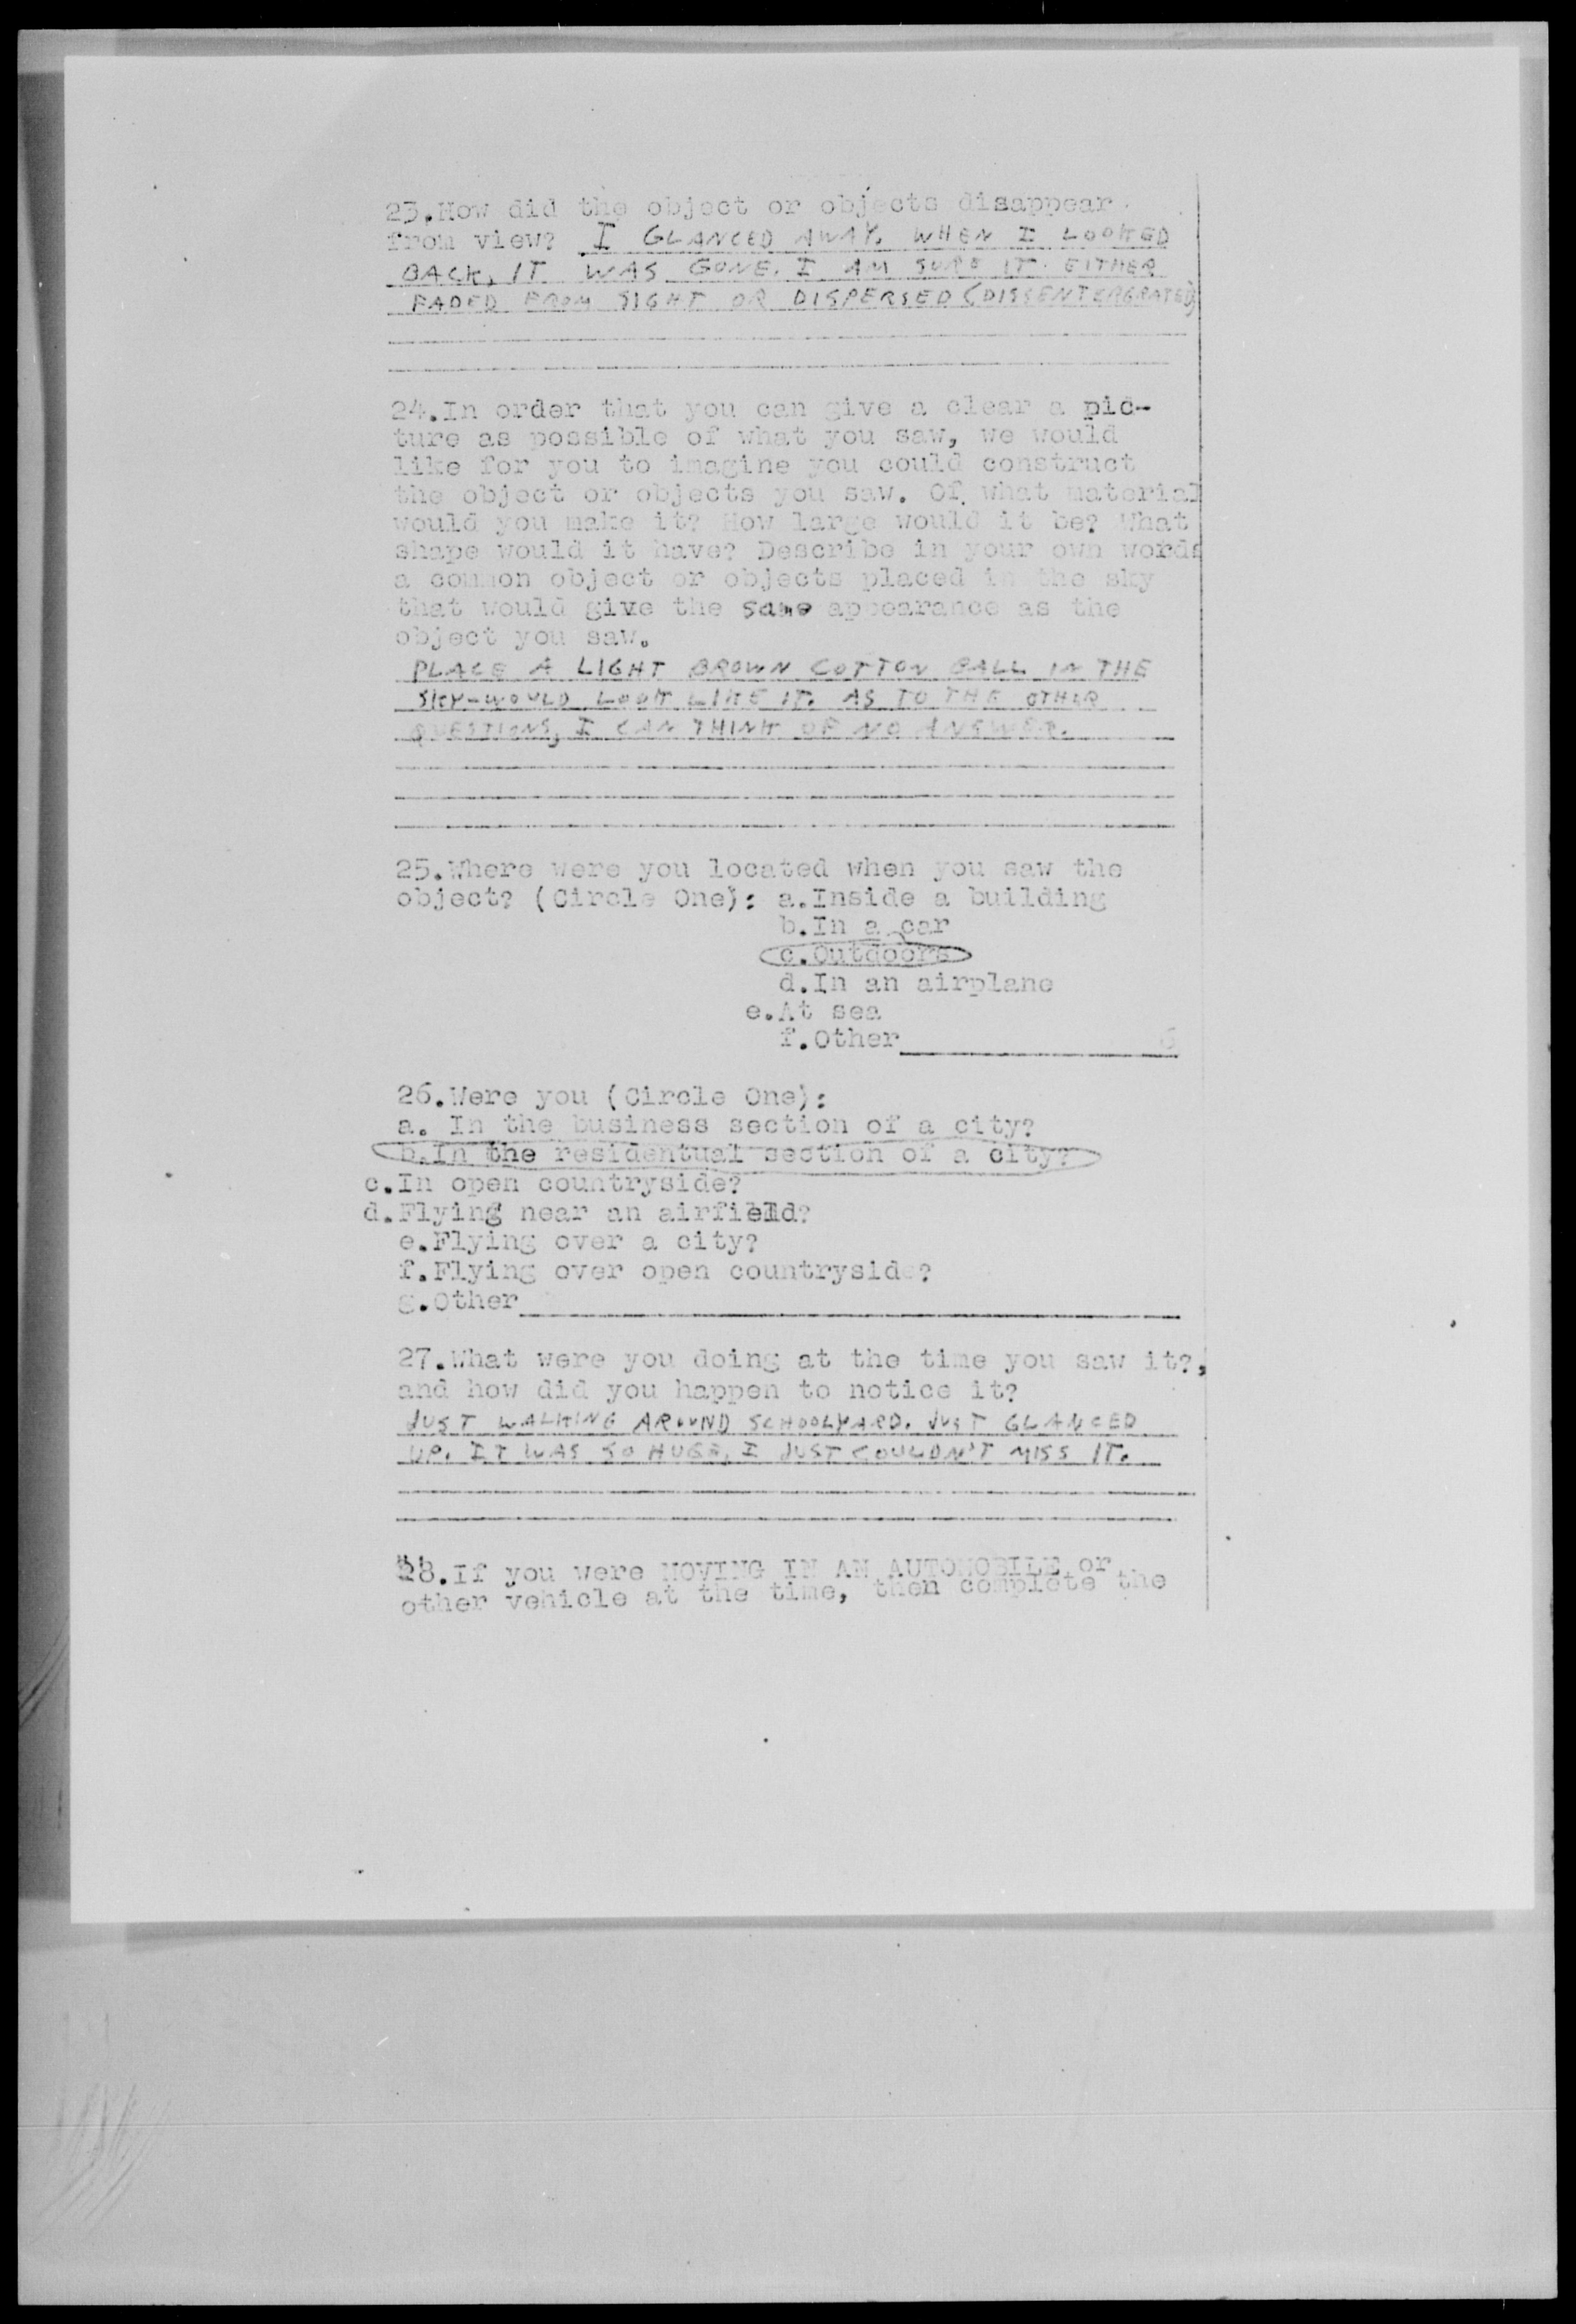 23.How did the object or objects disappear
from view? I GLANCED AWAY. WHEN I LOOKED
BACK, IT WAS GONE. I AM SURE IT EITHER
FADED FROM SIGHT OR DISPERSED (DISSENTERGRATED)
24.In order that you can give a clear a pic-
ture as possible of what you saw, we would
like for you to imagine you could construct
the object or objects you saw. Of what material
would you make it? How large would it be? What
shape would it have? Describe in your own words
a common object or objects placed in the sky
that would give the same appearance as the
object you saw.
PLACE A LIGHT BROWN COTTON BALL IN THE
SKY-WOULD LOOK LIKE IT. AS TO THE OTHER
QUESTIONS, I CAN THINK OF NO ANSWER.
25.Where were you located when you saw the
object? (Circle One): a.Inside a building
b.In a car
c.Outdoors
d.In an airplane
e.At sea
f.Other 6
26.Were you (Circle One):
a. In the business section of a city?
b.In the residentual section of a city?
c.In open countryside?
d.Flying near an airfield?
e.Flying over a city?
f.Flying over open countryside?
g.Other
27.What were you doing at the time you saw it?,
and how did you happen to notice it?
JUST WALKING AROUND SCHOOLYARD. JUST GLANCED
UP. IT WAS SO HUGE, I JUST COULDN'T MISS IT.
28.If you were MOVING IN AN AUTOMOBILE or
other vehicle at the time, then complete the